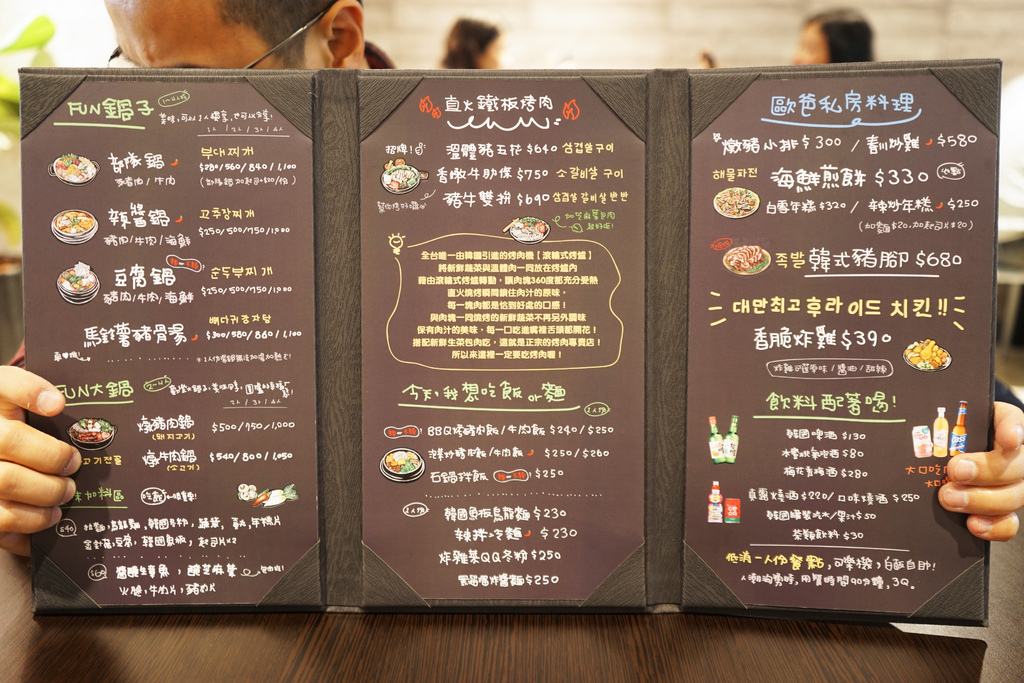 FUN鍋子
1人 / 2人 / 3人 / 4人
部隊鍋 부대찌개
豬肉 / 牛肉 $280/560/840/1,100
辣醬鍋 고추장찌개
豬肉/牛肉/海鮮 $250/500/750/1,900
豆腐鍋 순두부찌개
豬肉/牛肉/海鮮 $250/500/750/1,900
馬鈴薯豬骨湯 뼈다귀감자탕
$300/580/860/1,100
FUN大鍋
2人 / 3人 / 4人
燉豬肉鍋 $500/750/1,000
(돼지고기)
燉牛肉鍋 $540/800/1,050
(소고기)
고기전골
加料區
$40
起司片x2
$60
火腿,牛肉片,豬肉片
直火鐵板烤肉
招牌!
溫體豬五花 $640 삼겹살구이
香嫩牛肋條 $750 소갈비살구이
豬牛雙拚 $690 삼겹살갈비살반반
全台唯一由韓國引進的烤肉機【滾輪式烤爐】
將新鮮蔬菜與溫體肉一同放在烤爐內
藉由滾輪式烤爐轉動,讓肉塊360度都充分受熱
直火燒烤瞬間鎖住肉汁的原味,
每一塊肉都是恰到好處的口感!
與肉塊一同燒烤的新鮮蔬菜不再另外調味
保有肉汁的美味,每一口吃進嘴裡舌頭都開花!
搭配新鮮生菜包肉吃,這就是正宗的烤肉專賣店!
所以來這裡一定要吃烤肉喔!
今天,我想吃飯or麵
1人份
BBQ烤豬肉飯/牛肉飯 $240/$250
辣炒豬肉飯/牛肉飯 $250/$260
石鍋拌飯 $250
1人份
韓國魚板烏龍麵 $230
辣拌冷麵 $230
炸雞基QQ冬粉 $250
黑嚕嚕炸醬麵 $250
歐爸私房料理
燉豬小排 $300 / 春川炒雞 $580
해물파전 海鮮煎餅 $330 必點
白雪年糕 $320 / 辣炒年糕 $250
(加麵$20,加起司$20)
족발 韓式豬腳 $680
대만최고후라이드치킨!!
香脆炸雞 $390
炸雞可選原味 / 醬油 / 甜辣
飲料配著喝!
韓國啤酒 $130
水蜜桃氣泡酒 $80
梅花青梅酒 $280
真露燒酒 $220 / 口味燒酒 $250
韓國罐裝汽水/果汁 $50
茶類飲料 $30
大口吃肉
低消一人份餐點,可樂機,白飯自助!
人潮洶湧時,用餐時間90分鐘,3Q。